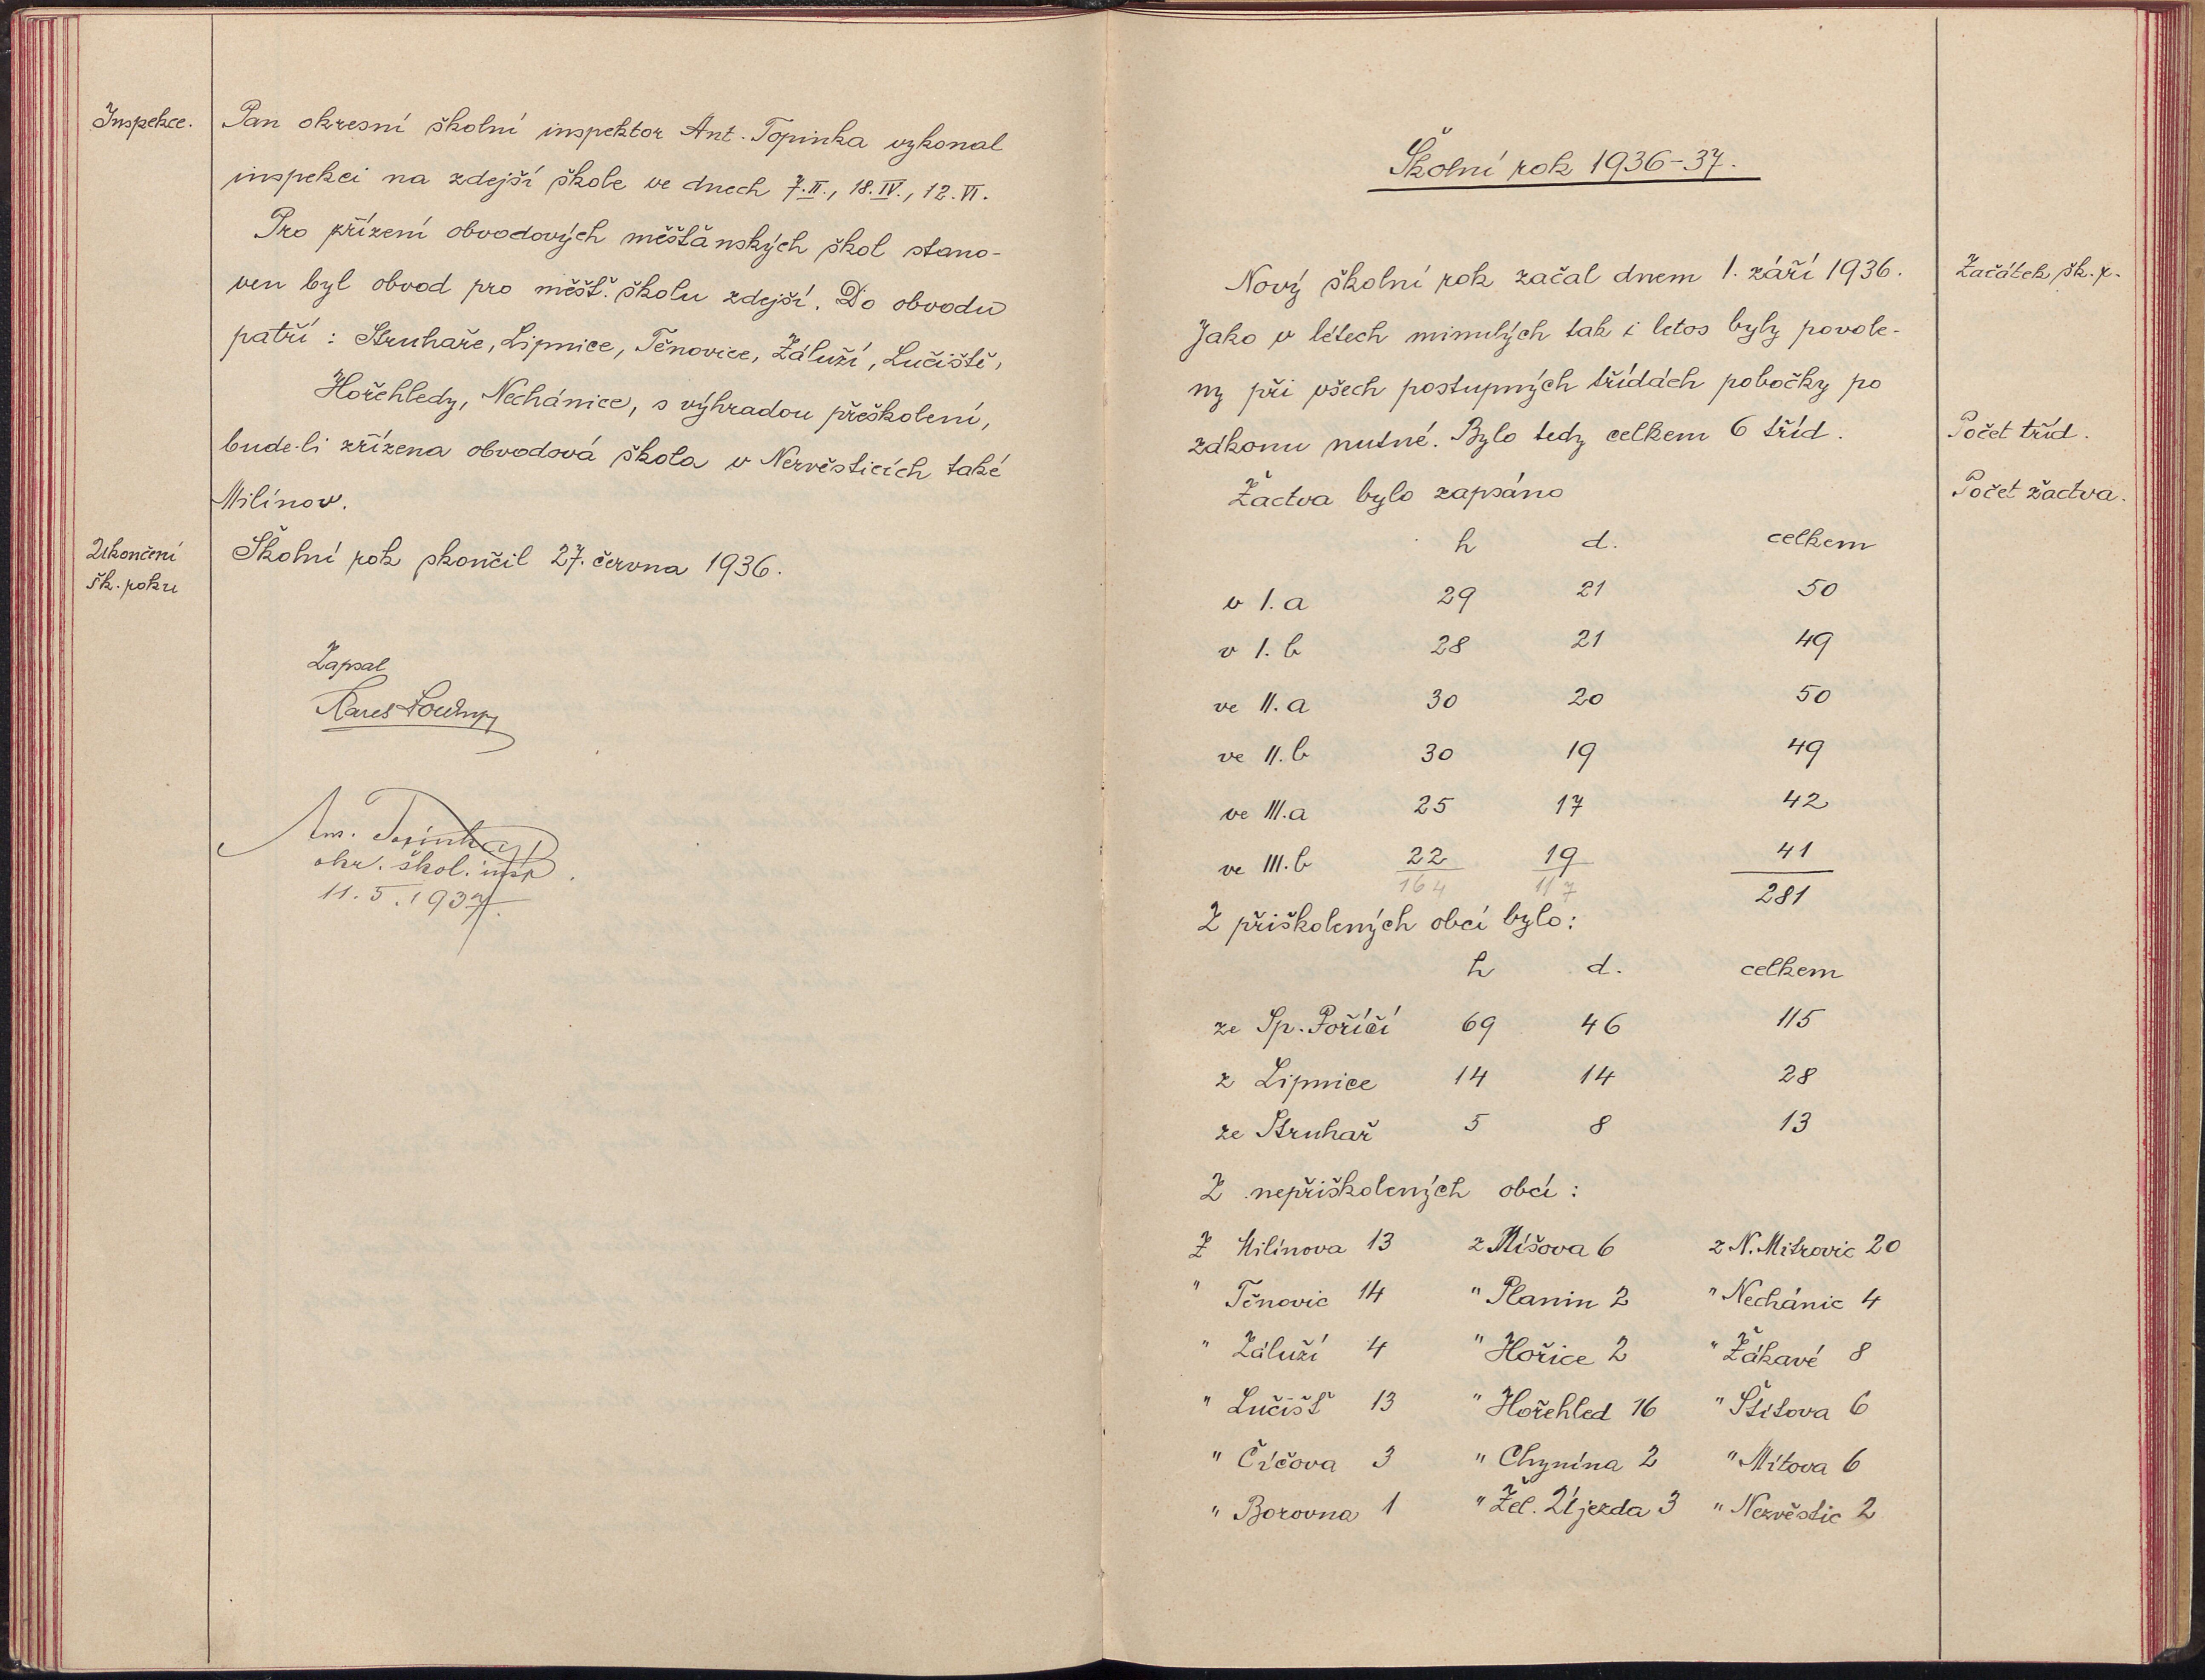 Inspekce.
Pan okresní školní inspektor Ant. Topinka vykonal
inspekci na zdejší škole ve dnech 7.II., 18.IV., 12.VI.
Pro zřízení obvodových měšťanských škol stano-
ven byl obvod pro měšť. školu zdejší. Do obvodu
patří: Struhaře, Lipnice, Těnovice, Záluží, Lučiště,
Hořehledy, Nechánice, s výhradou přeškolení,
bude-li zřízena obvodová škola v Nezvěsticích také
Milínov.
Ukončení
šk. roku
Školní rok skončil 27. června 1936.
Zapsal
Karel
Topinka
okr. škol. insp.
11.5.1937.
Školní rok 1936-37.
Začátek šk. r.
Nový školní rok začal dnem 1. září 1936.
Jako v létech minulých tak i letos byly povole-
ny při všech postupných třídách pobočky po
Počet tříd.
zákonu nutné. Bylo tedy celkem 6 tříd.
Počet žactva.
Žactva bylo zapsáno
h d. celkem
v I.a 29 21 50
v I.b 28 21 49
ve II.a 30 20 50
ve II.b 30 19 49
ve III.a 25 17 42
ve III.b 22 19 41
164 117 281
Z přiškolených obcí bylo:
h d. celkem
ze Sp. Poříčí 69 46 115
z Lipnice 14 14 28
ze Struhař 5 8 13
Z nepřiškolených obcí:
Z Milínova 13 z Míšova 6 z N. Mitrovic 20
" Těnovic 14 " Planin 2 " Nechánic 4
" Záluží 4 " Hořice 2 " Žákavé 8
" Lučišť 13 " Hořehled 16 " Štítova 6
" Číčova 3 " Chynína 2 " Mítova 6
" Borovna 1 " Žel. Újezda 3 " Nezvěstic 2